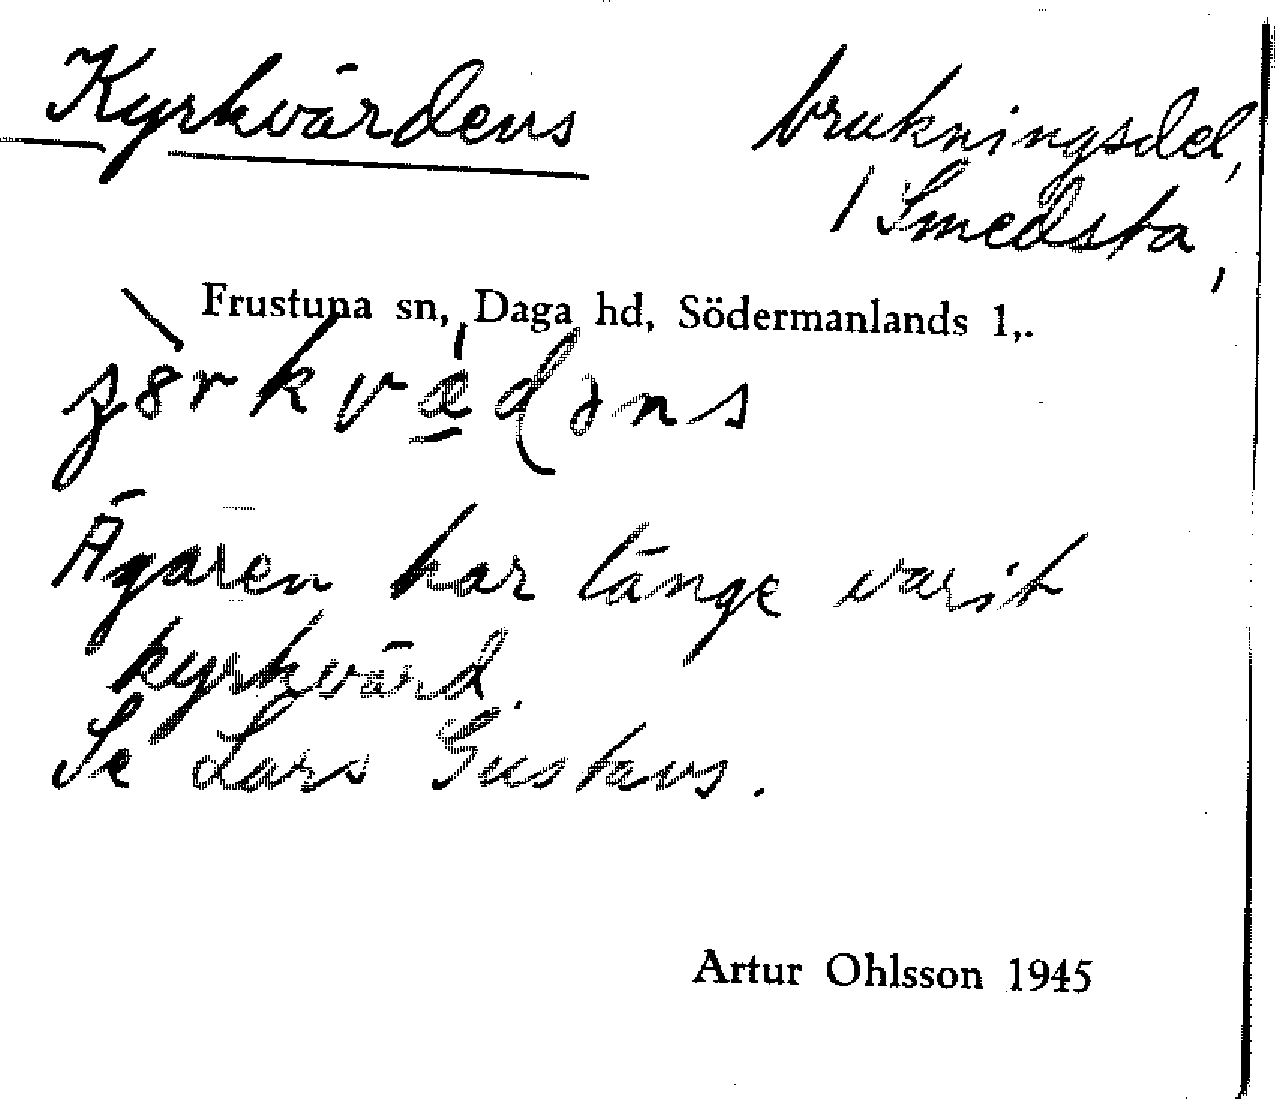 Kyrkvärdens brukningsdel,
/ Smedsta,
Frustuna sn, Daga hd, Södermanlands l,.
Ägaren har länge varit
kyrkvärd.
Se Lars Gustavs.
Artur Ohlsson 1945